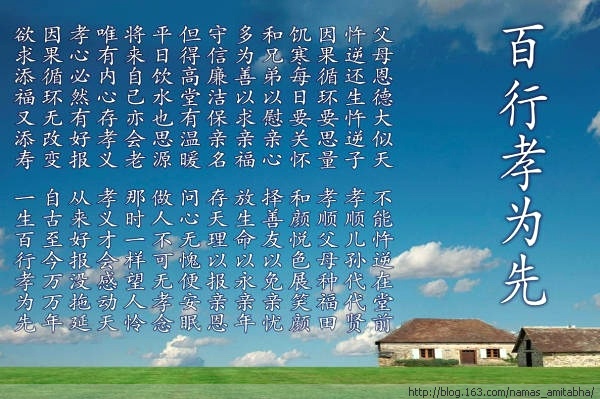 百行孝为先
父母恩德大似天
不能忤逆在堂前
忤逆还生忤逆子
孝顺儿孙代代贤
因果循环要思量
孝顺父母种福田
饥寒每日要关怀
和颜悦色展笑颜
和兄弟以慰亲心
择善友以免亲忧
多为善以求亲福
放生命以永亲年
守信廉洁保亲名
存天理以报亲恩
但得高堂有温暖
问心无愧便安眠
平日饮水也思源
做人不可无孝念
将来自己亦会老
那时一样望人怜
唯有内心存孝义
孝义才会感动天
孝心必然有好报
从来好报没拖延
因果循环无改变
自古至今万万年
欲求添福又添寿
一生百行孝为先
http://blog.163.com/namas_amitabha/